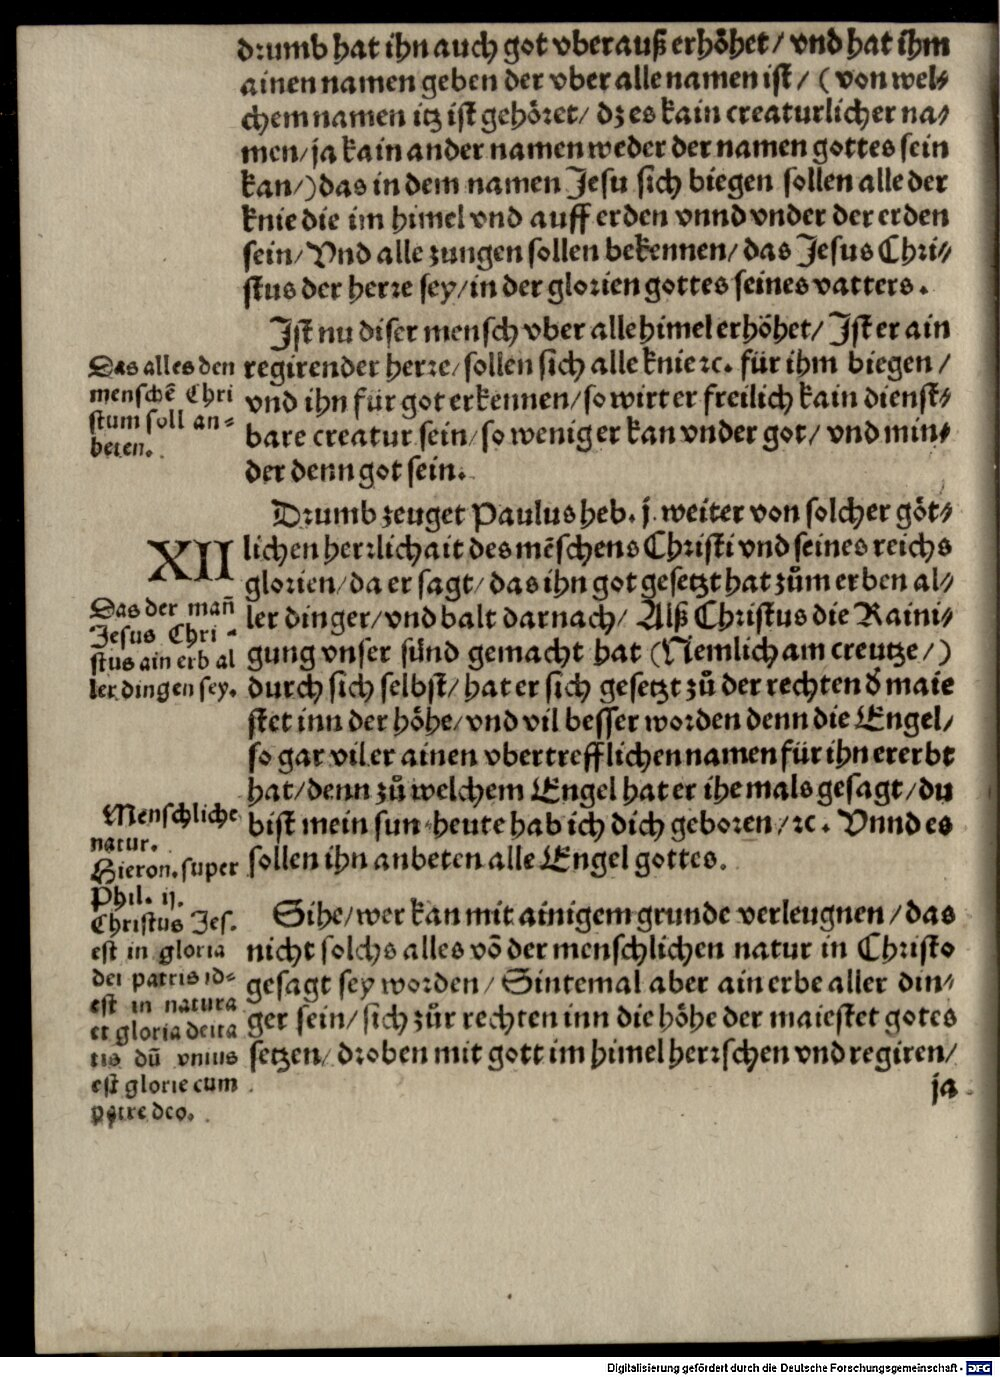 drumb hat ihn auch got vberauß erhöhet/ vnd hat ihm
ainen namen geben der vber alle namen ist/ (von wel⸗
chem namen itz ist gehöret/ dz es kain creaturlicher na⸗
men/ ja kain ander namen weder der namen gottes sein
kan/) das in dem namen Jesu sich biegen sollen alle der
knie die im himel vnd auff erden vnnd vnder der erden
sein/ Vnd alle zungen sollen bekennen/ das Jesus Chri⸗
stus der herre sey/ in der glorien gottes seines vatters.
Ist nu diser mensch vber alle himel erhöhet/ Ist er ain
regirender herre/ sollen sich alle knie ꝛc. für ihm biegen/
vnd ihn für got erkennen/ so wirt er freilich kain dienst⸗
bare creatur sein/ so weniger kan vnder got/ vnd min⸗
der denn got sein.
Das alles den
menschē Chri
stum soll an⸗
beten.
Drumb zeuget Paulus heb. j. weiter von solcher göt⸗
lichen herrlichait des mēschens Christi vnd seines reichs
glorien/ da er sagt/ das ihn got gesetzt hat zům erben al⸗
ler dinger/ vnd balt darnach/ Alß Christus die Raini⸗
gung vnser sünd gemacht hat (Nemlich am creutze/)
durch sich selbst/ hat er sich gesetzt zů der rechten d̕ maie
stet inn der höhe/ vnd vil besser worden denn die Engel/
so gar vil er ainen vbertrefflichen namen für ihn ererbt
hat/ denn zů welchem Engel hat er ihemals gesagt/ du
bist mein sun heute hab ich dich geboren/ ꝛc. Vnnd es
sollen ihn anbeten alle Engel gottes.
XII
Das der mañ
Jesus Chri⸗
stus ain erb al
ler dingen sey.
Menschliche
natur.
Hieron. super
Phil. ij.
Christus Jes.
est in gloria
dei patris id⸗
est in natura
et gloria deita
tis dū vnius
est glorie cum
patre deo.
Sihe/ wer kan mit ainigem grunde verleugnen/ das
nicht solchs alles võ der menschlichen natur in Christo
gesagt sey worden/ Sintemal aber ain erbe aller din⸗
ger sein/ sich zůr rechten inn die höhe der maiestet gotes
setzen/ droben mit gott im himel herrschen vnd regiren/
ja
Digitalisierung gefördert durch die Deutsche Forschungsgemeinschaft - DFG